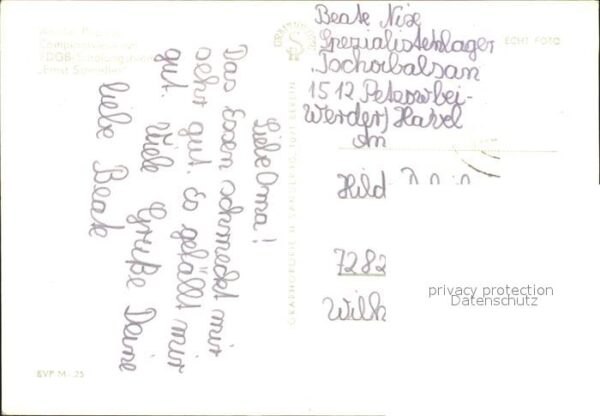 Liebe Oma!
Das Essen schmeckt mir
sehr gut. Es gefällt mir
gut. Viele Grüße Deine
liebe Beate
Beate Nixe
Spezialistenlager
1512 Petzow bei
Werder/Havel
An
Hild
7282
Wilh
ECHT FOTO
privacy protection
Datenschutz
"Ernst Schneller"
EVP M -,25